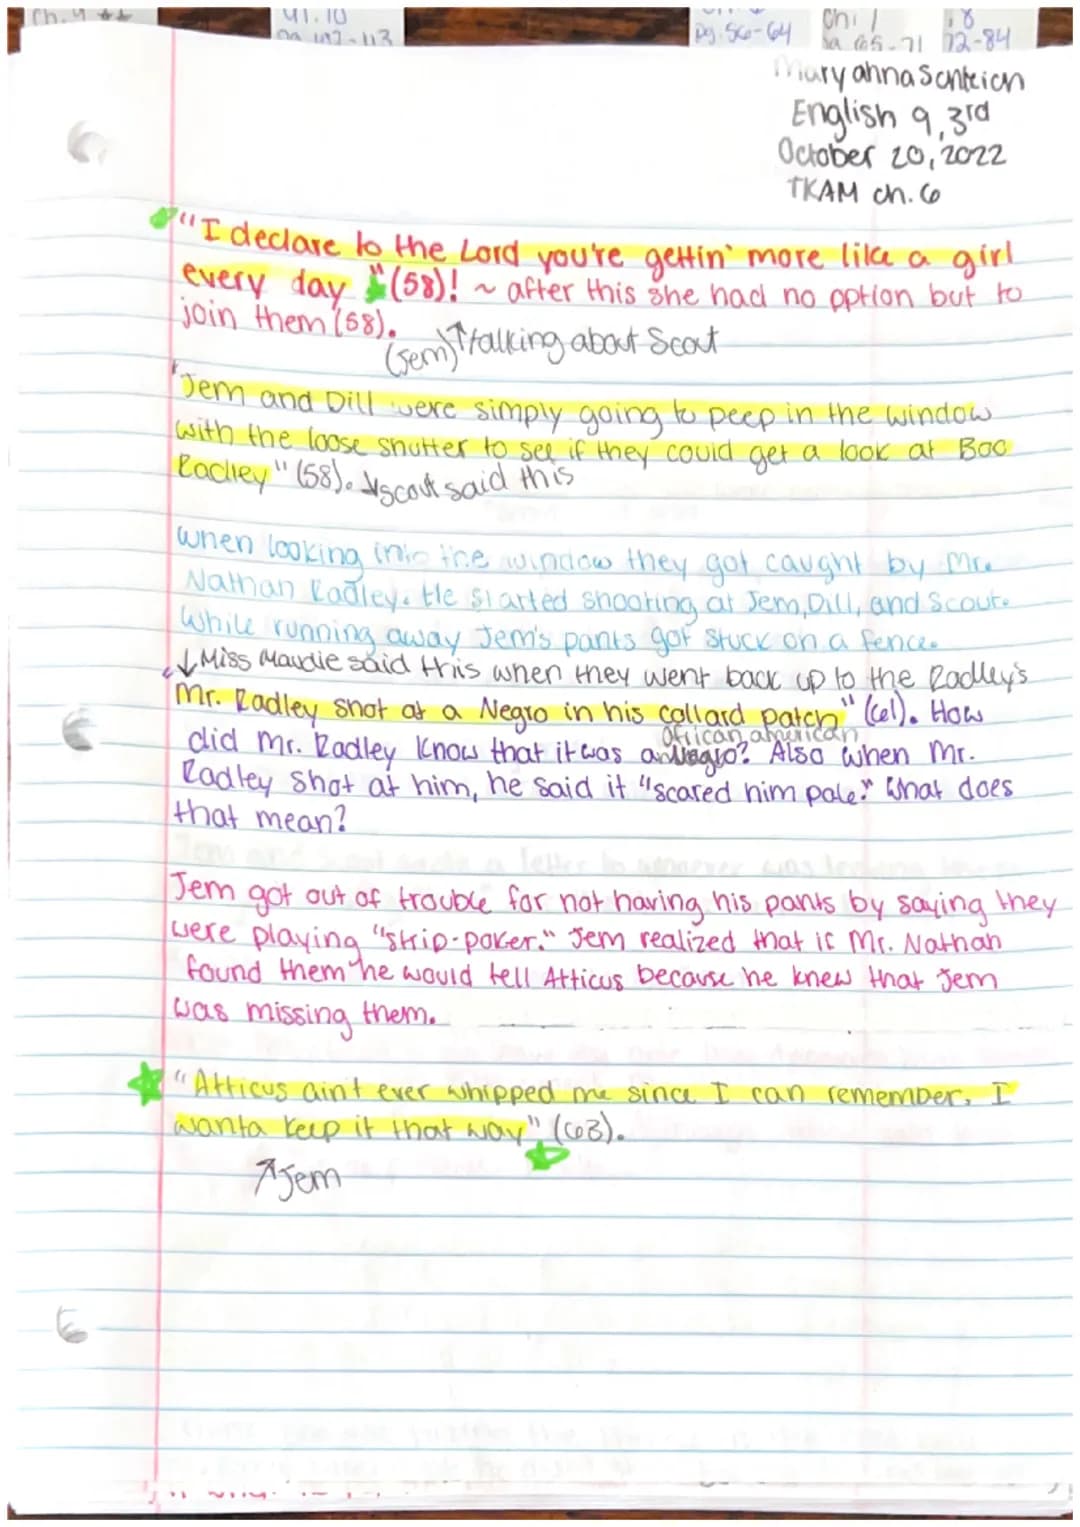 Ch. 4 **
41.10
pg. 56-64
72-84
English 9, 3rd
October 20, 2022
TKAM ch. 6
"I declare to the Lord you're gettin' more like a girl
every day" (58)! ~ after this she had no option but to
join them (58).
(Jem) ↑ talking about Scout
"Jem and Dill were simply going to peep in the window
with the loose shutter to see if they could get a look at Boo
Radley" (58). ↓ Scout said this
When looking into the window they got caught by Mr.
Nathan Radley. He started shooting at Jem, Dill, and Scout.
While running away Jem's pants got stuck on a fence.
↓ Miss Maudie said this when they went back up to the Radley's
"Mr. Radley shot at a Negro in his collard patch" (61). How
african american
did Mr. Radley know that it was a Negro? Also when Mr.
Radley shot at him, he said it "scared him pale." What does
that mean?
Jem got out of trouble for not having his pants by saying they
were playing "strip-poker." Jem realized that if Mr. Nathan
found them he would tell Atticus because he knew that Jem
was missing them.
"Atticus ain't ever whipped me since I can remember. I
wanta keep it that way" (63).
↑ Jem